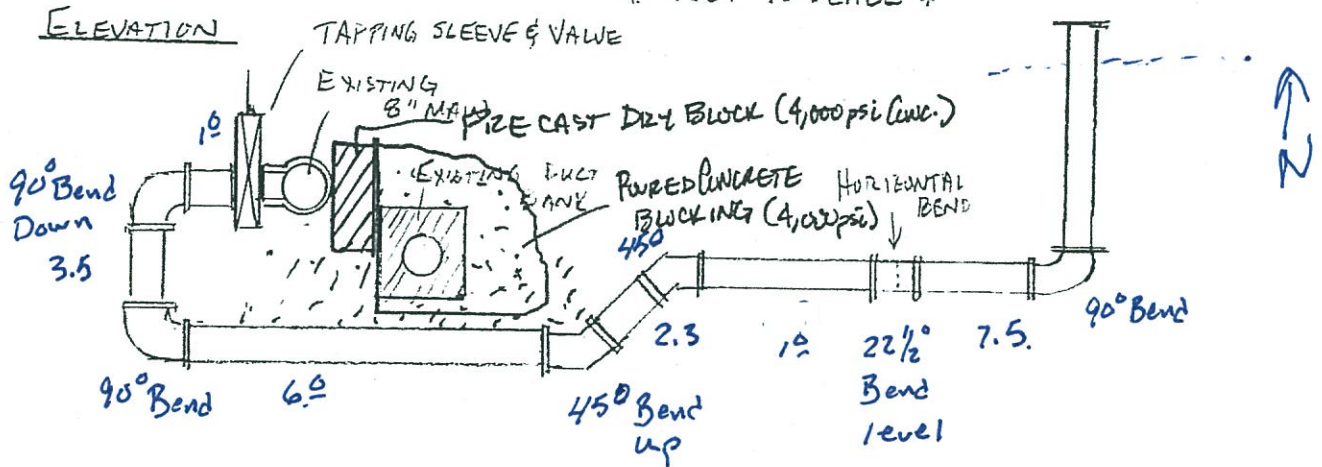 ELEVATION
TAPPING SLEEVE & VALVE
EXISTING
8" MAIN
PRECAST DRY BLOCK (4,000 psi Conc.)
EXISTING DUCT
BANK
POURED CONCRETE
BLOCKING (4,000 psi)
HORIZONTAL
BEND
N
1.0
90° Bend
Down
3.5
90° Bend
6.0
45° Bend
up
45°
2.3
1.0
22½°
Bend
level
7.5.
90° Bend